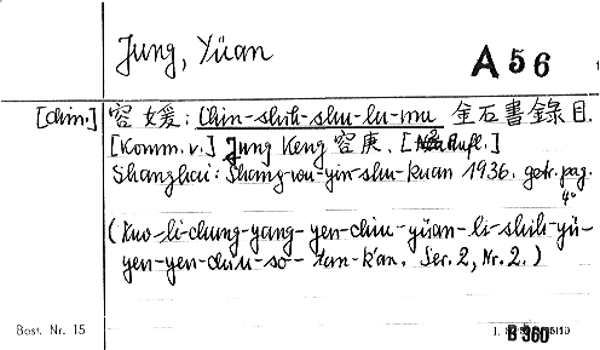 Jung, Yüan
A 56
[chin.] 容媛: Chin-shih-shu-lu-mu 金石書錄目.
[Komm. v.] Jung Keng 容庚. [Aufl.]
Shanghai: Shang-wu-yin-shu-kuan 1936. getr. pag.
4°
(Kuo-li-chung-yang-yen-chiu-yüan-li-shih-yü-
yen-yen-chiu-so-tan-k'an. Ser. 2, Nr. 2.)
Best. Nr. 15
B 560